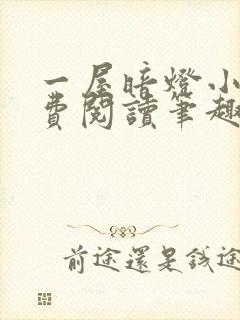 一屋暗燈小
費閱讀筆趣
前途還是錢途